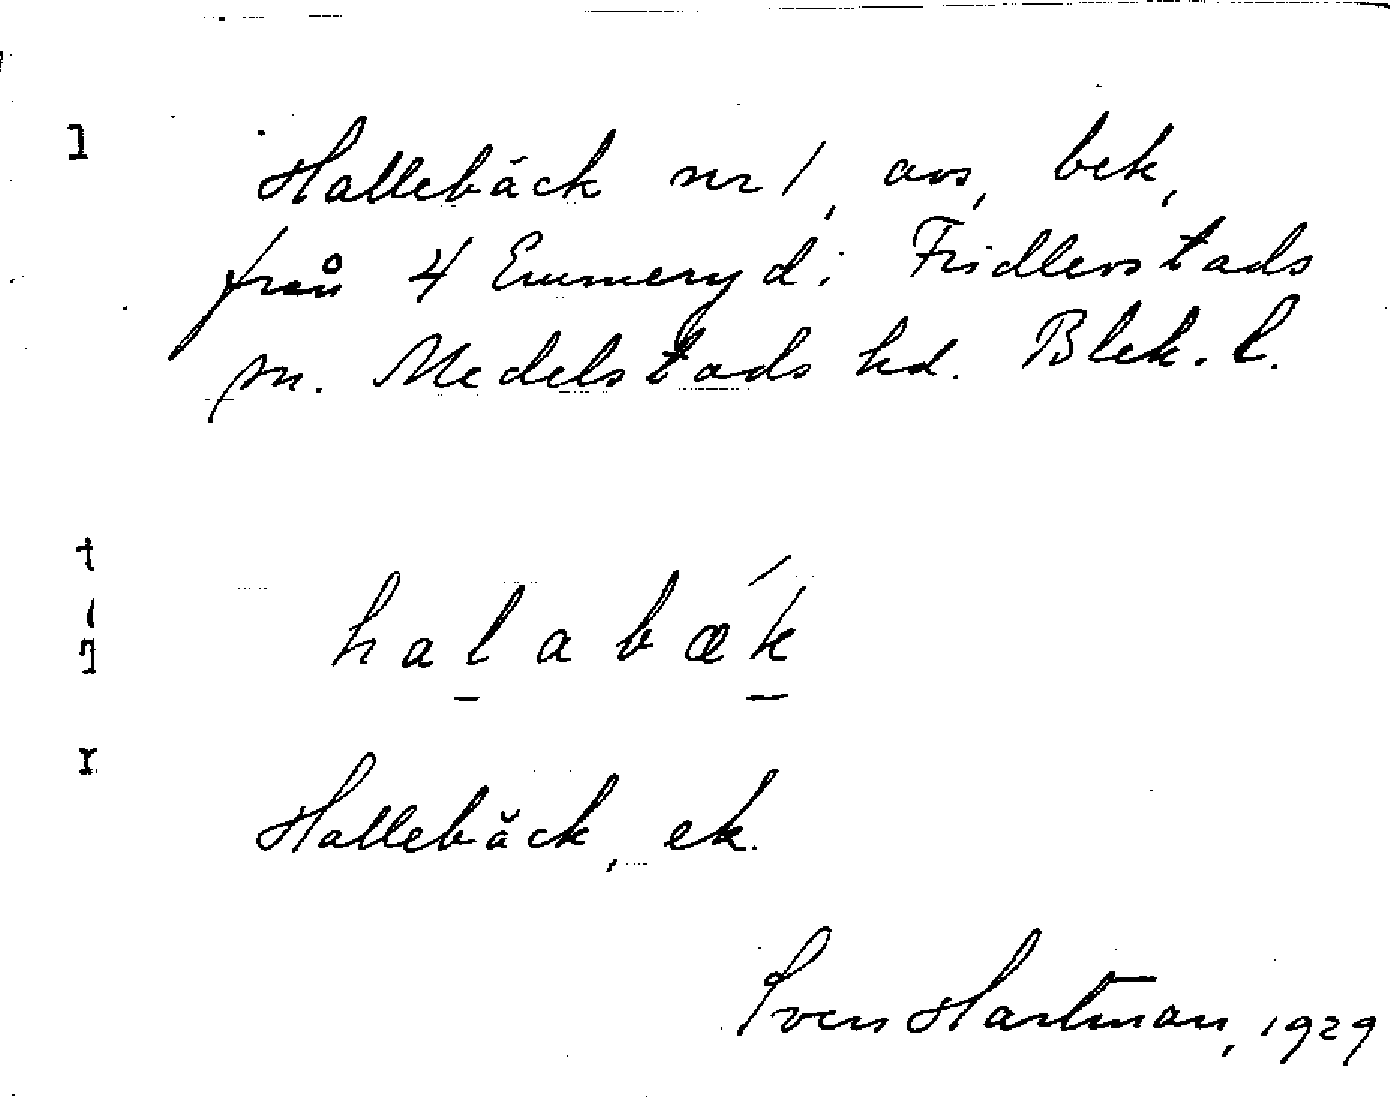 1 Hallebäck nr 1, avs, bek,
från 4 Emmeryd i Fridlevstads
sn. Medelstads hd. Blek. l.
halabæ´k
Hallebäck, ek.
Sven Hartman, 1929